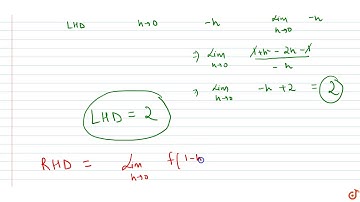 LHD h→0 -h lim h→0 -h
⇒ lim h→0 1+h² - 2h - 1 / -h
⇒ lim h→0 -h + 2 = 2
LHD = 2
RHD = lim h→0 f(1-h